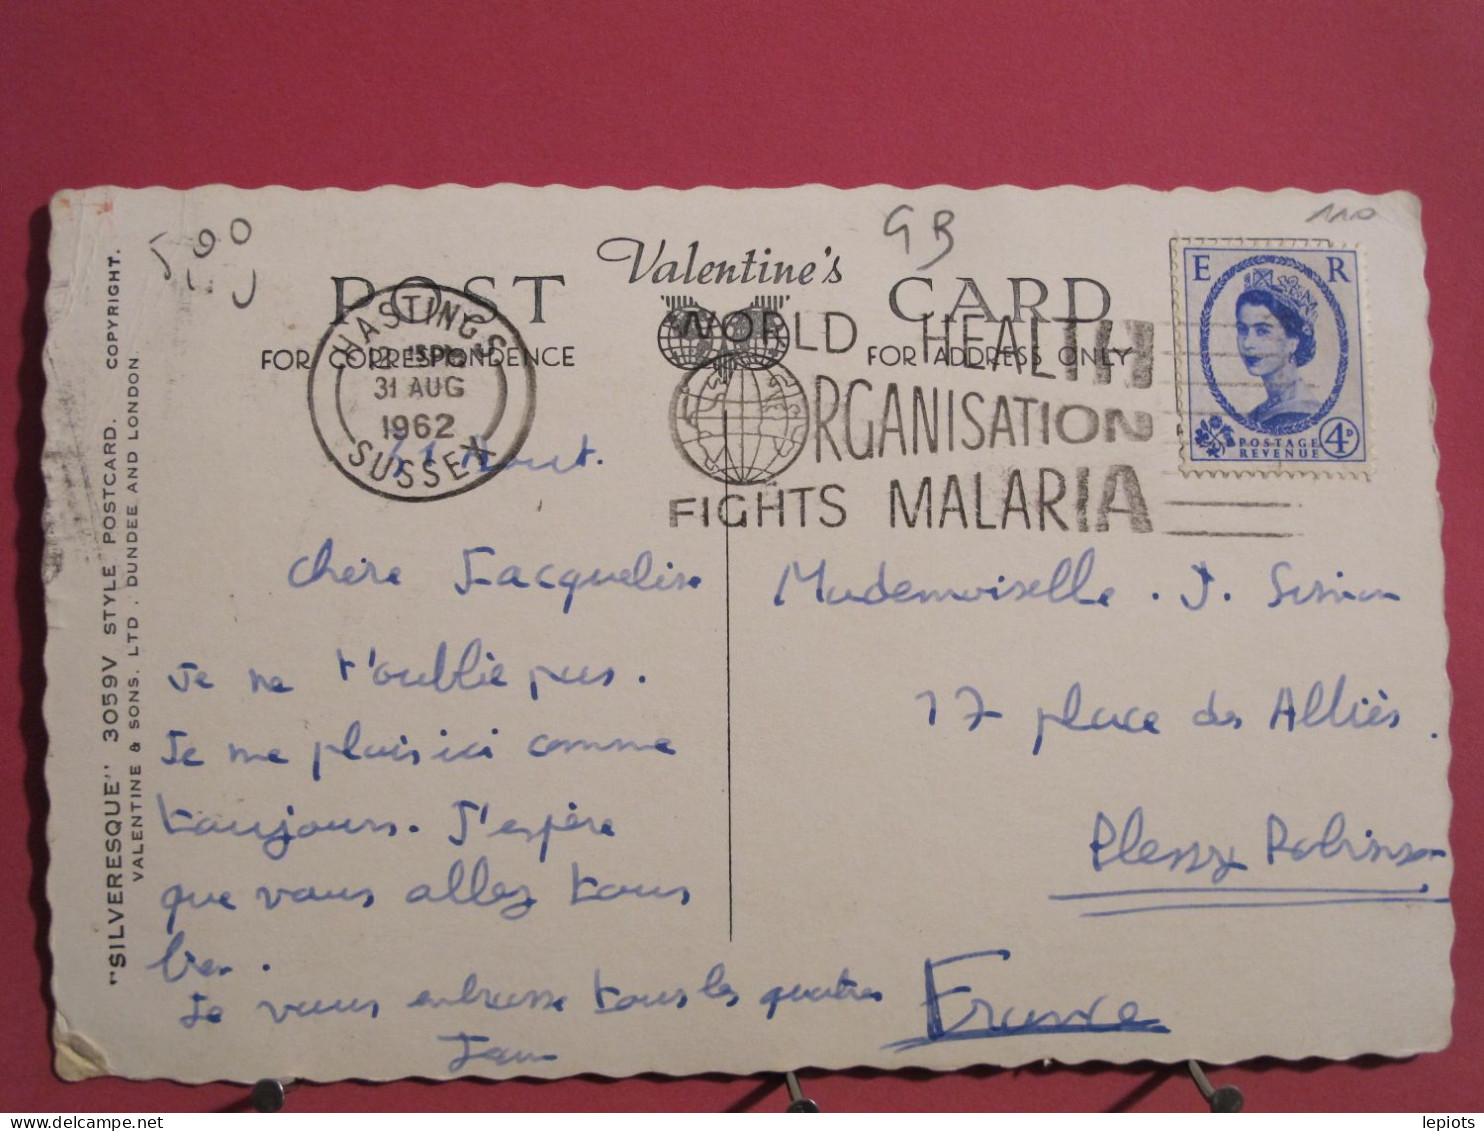 Valentine's
POST CARD
FOR CORRESPONDENCE
FOR ADDRESS ONLY
GB
110
HASTINGS
12.15 PM
31 AUG
1962
SUSSEX
WORLD HEALTH
ORGANISATION
FIGHTS MALARIA
E R
POSTAGE
REVENUE
4D
"SILVERESQUE" 3059V STYLE POSTCARD. COPYRIGHT.
VALENTINE & SONS. LTD. DUNDEE AND LONDON
31 Aout.
Chère Jacqueline
Je ne t'oublie pas.
Je me plais ici comme
toujours. J'espère
que vous allez tous
bien.
Je vous embrasse tous les quatres
Jean
Mademoiselle. J. Simon
17 place des Alliés.
Plessy Robinson
France
lepiots
www.delcampe.net